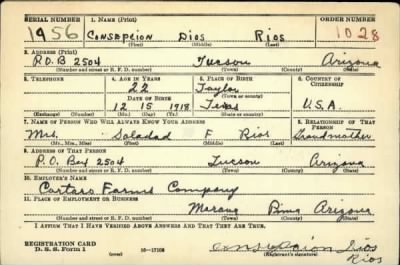 SERIAL NUMBER 1. NAME (Print) ORDER NUMBER
1956 Consepcion Dios Rios 1028
(First) (Middle) (Last)
2. ADDRESS (Print)
P.O.B 2504 Tucson Arizona
(Number and street or R. F. D. number) (Town) (County) (State)
3. TELEPHONE 4. AGE IN YEARS 5. PLACE OF BIRTH 6. COUNTRY OF CITIZENSHIP
22 Taylor
DATE OF BIRTH (Town or county)
12 15 1918 Texas U.S.A.
(Exchange) (Number) (Mo.) (Day) (Yr.) (State or country)
7. NAME OF PERSON WHO WILL ALWAYS KNOW YOUR ADDRESS 8. RELATIONSHIP OF THAT PERSON
Mrs. Soladad F Rios Grandmother
(Mr., Mrs., Miss) (First) (Middle) (Last)
9. ADDRESS OF THAT PERSON
P.O. Box 2504 Tucson Arizona
(Number and street or R. F. D. number) (Town) (County) (State)
10. EMPLOYER'S NAME
Cortaro Farms Company
11. PLACE OF EMPLOYMENT OR BUSINESS
Marana Pima Arizona
(Number and street or R. F. D. number) (Town) (County) (State)
I AFFIRM THAT I HAVE VERIFIED ABOVE ANSWERS AND THAT THEY ARE TRUE.
REGISTRATION CARD
D. S. S. Form 1 16—17105 (Registrant's signature)
Rios